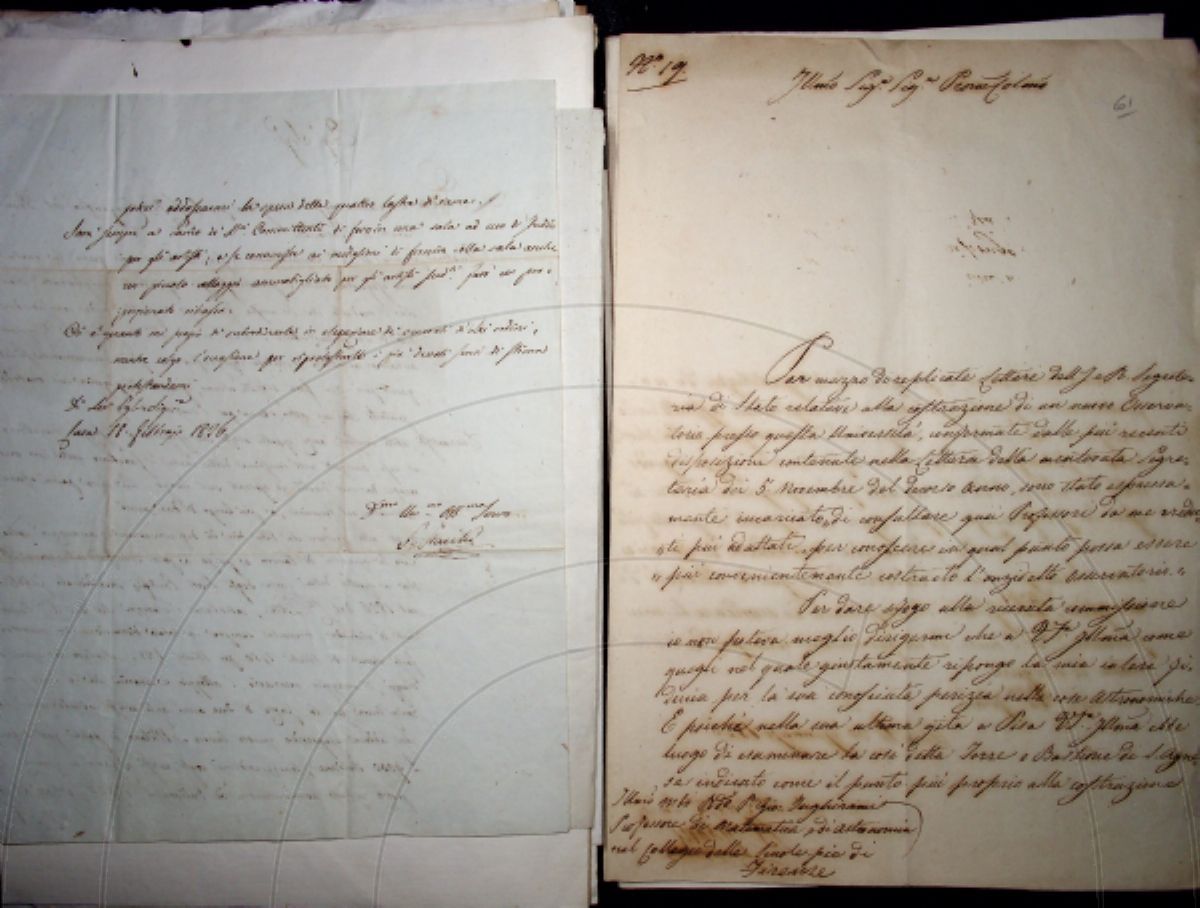 potrei addossarmi la spesa delle quattro lastre di rame.
Sarà sempre a carico di di fornire una sala ad uso di studio
per gli artisti; e se ai medesimi di fornire alla sala anche
un piccolo alloggio ammobigliato per gli artisti sud.ti farò un pro-
porzionato ribasso.
Ciò è quanto mi pregio di in di di Lei ordini,
mentre colgo l'occasione per i più devoti sensi di stima
protestandomi
Di Lei
Casa 12. Febbraio 1826
Servo
N.o 19.
Illmo Sig.r Sig.r Prone Colmo
61
Per mezzo di replicate Lettere dell'I. e R. Segrete-
ria di Stato relative alla costruzione di un nuovo Osserva-
torio presso questa Università, confermate dalle più recenti
disposizioni contenute nella Lettera della mentovata Segre-
taria dei 5 Novembre del decorso Anno, sono stato espressa-
mente incaricato, di consultare quei Professori da me credu-
ti più adattati, per conoscere in qual punto possa essere
" più convenientemente costruito l'anzidetto Osservatorio. "
Per dare sfogo alla ricevuta commissione
io non poteva meglio dirigermi che a V.S. Illma come
quegli nel quale giustamente ripongo la mia intera fi-
ducia per la sua conosciuta perizia nelle cose Astronomiche
E poichè nella sua ultima gita a Pisa V.S. Illma ebbe
luogo di esaminare la così detta Torre o Bastione di S. Agne-
se indicato come il punto più proprio alla costruzione
Illmo Mto Rdo P. Gio. Inghirami
Professore di Matematica e di Astronomia
nel Collegio delle Scuole pie di
Firenze